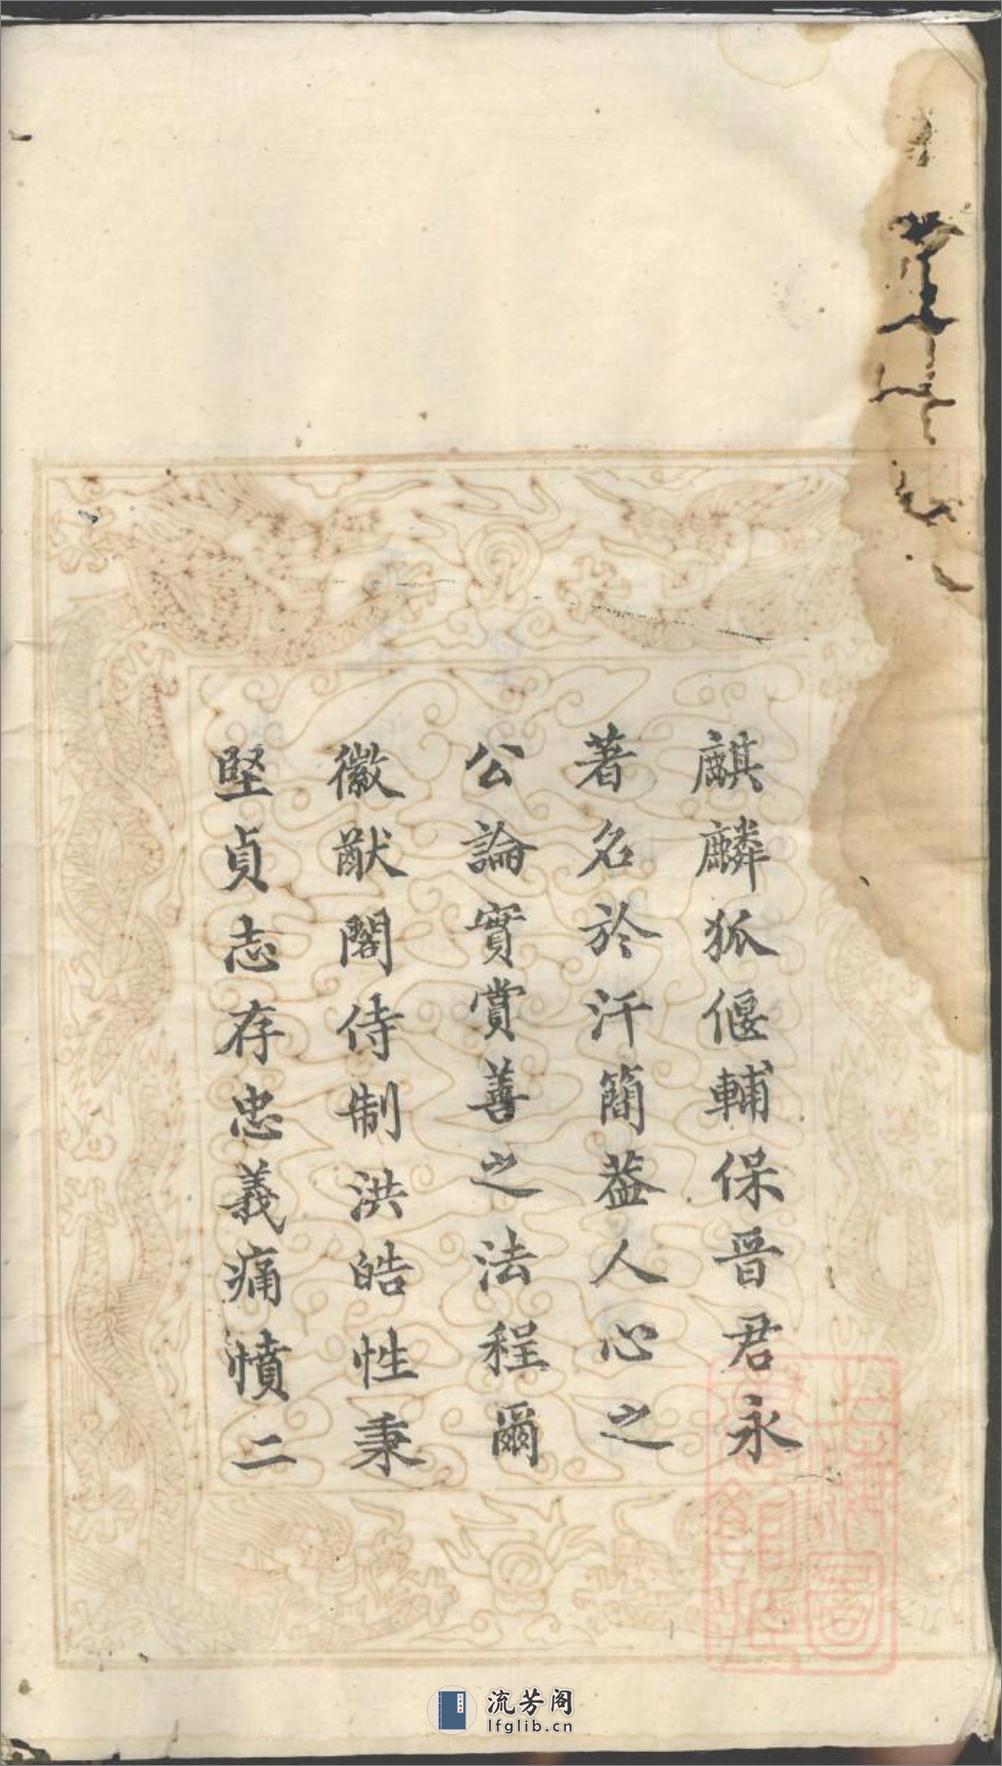 麒麟狐偃輔保晉君永
著名於汗簡葢人心之
公論實賞善之法程爾
徽猷閣侍制洪皓性秉
堅貞志存忠義痛憤二
上海圖書館藏
流芳阁
lfglib.cn